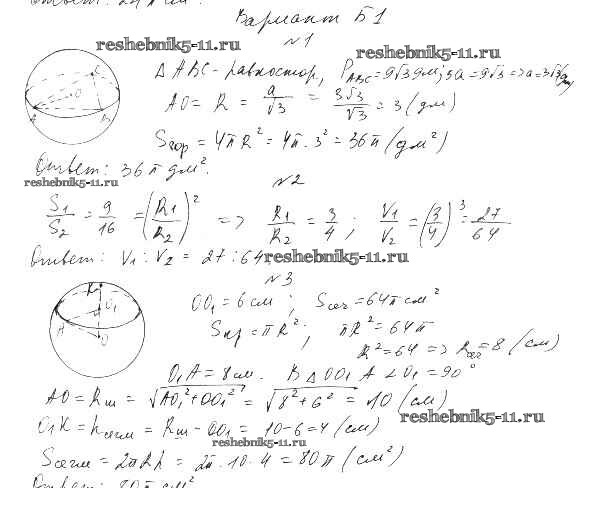 Вариант Б1
№1
reshebnik5-11.ru
reshebnik5-11.ru
Δ ABC - равностор, P_ABC = 9√3 дм; 3a = 9√3 => a = 3√3 (дм)
AO = R = a/√3 = 3√3/√3 = 3 (дм)
Sпов = 4πR² = 4π·3² = 36π (дм²)
Ответ: 36π дм².
reshebnik5-11.ru
№2
S₁/S₂ = 9/16 = (R₁/R₂)² => R₁/R₂ = 3/4 ; V₁/V₂ = (3/4)³ = 27/64
Ответ: V₁ : V₂ = 27 : 64.
reshebnik5-11.ru
№3
OO₁ = 6 см ; Sсеч = 64π см²
Sкр = πR² ; πR² = 64π
R² = 64 => Rсеч = 8 (см)
O₁A = 8 см. В Δ OO₁A ∠O₁ = 90°
AO = Rш = √(AO₁² + OO₁²) = √(8² + 6²) = 10 (см)
reshebnik5-11.ru
O₁K = hсегм = Rш - OO₁ = 10 - 6 = 4 (см)
reshebnik5-11.ru
Sсегм = 2πRh = 2π · 10 · 4 = 80π (см²)
Ответ: 80π см²